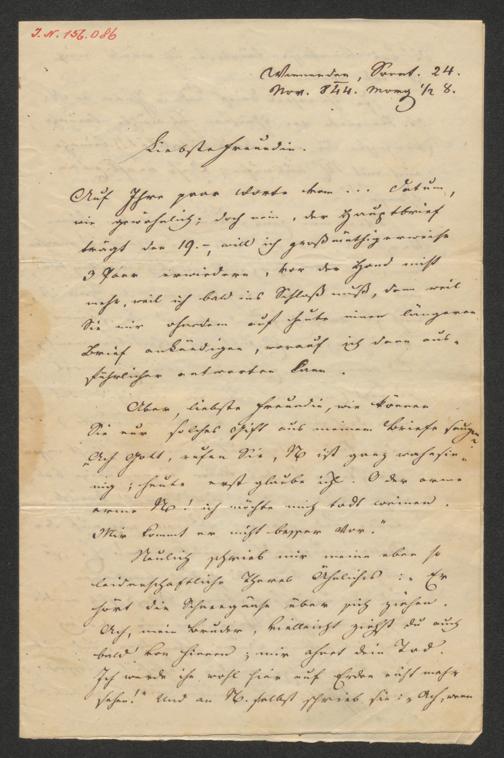 I. N. 156.086
Winnenden, Sonnt. 24.
Nov. 844. Morg ½ 8.
Liebste Freundin.
Auf Ihre paar Worte vom ... Datum,
wie gewöhnlich; doch nein, der Hauptbrief
trägt den 19.–, will ich großmüthigerweise
3 Paar erwiedern, vor der Hand nicht
mehr, weil ich bald ins Schloß muß, dann weil
Sie mir ohnedem auf heute einen längeren
Brief ankündigen, worauf ich dann aus-
führlicher antworten kann.
Aber, liebste Freundin, wie können
Sie nur solches Gift aus meinem Briefe saugen?
„Ach Gott, rufen Sie, N ist ganz wahnsin-
nig; heute erst glaube ichs. O der arme
arme N! ich möchte mich todt weinen.
Mir kommt er nicht besser vor."
Neulich schrieb mir meine eben so
leidenschaftliche Theres Ähnliches: „Er
hört die Schneegänse über sich ziehen.
Ach, mein Bruder, vielleicht ziehst du auch
bald von hinnen; mir ahnet dein Tod
Ich werde ihn wohl hier auf Erden nicht mehr
sehen!" Und an N. selbst schrieb sie: „Ach, wenn